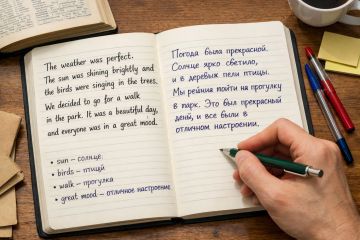 The weather was perfect.
The sun was shining brightly and
the birds were singing in the trees.
We decided to go for a walk
in the park. It was a beautiful day,
and everyone was in a great mood.
• sun – солнце
• birds – птицы
• walk – прогулка
• great mood – отличное настроение
Погода была прекрасной.
Солнце ярко светило,
и в деревьях пели птицы.
Мы решили пойти на прогулку
в парк. Это был прекрасный
день, и все были в
отличном настроении.